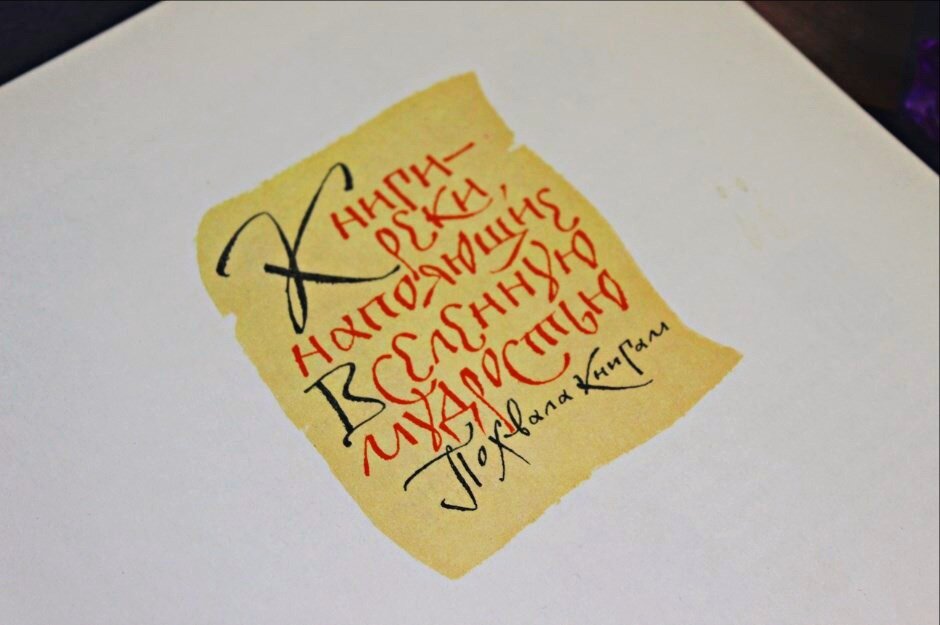 Книги—
реки,
напояющиѣ
Вселенную
мудростью
Похвала Книгам